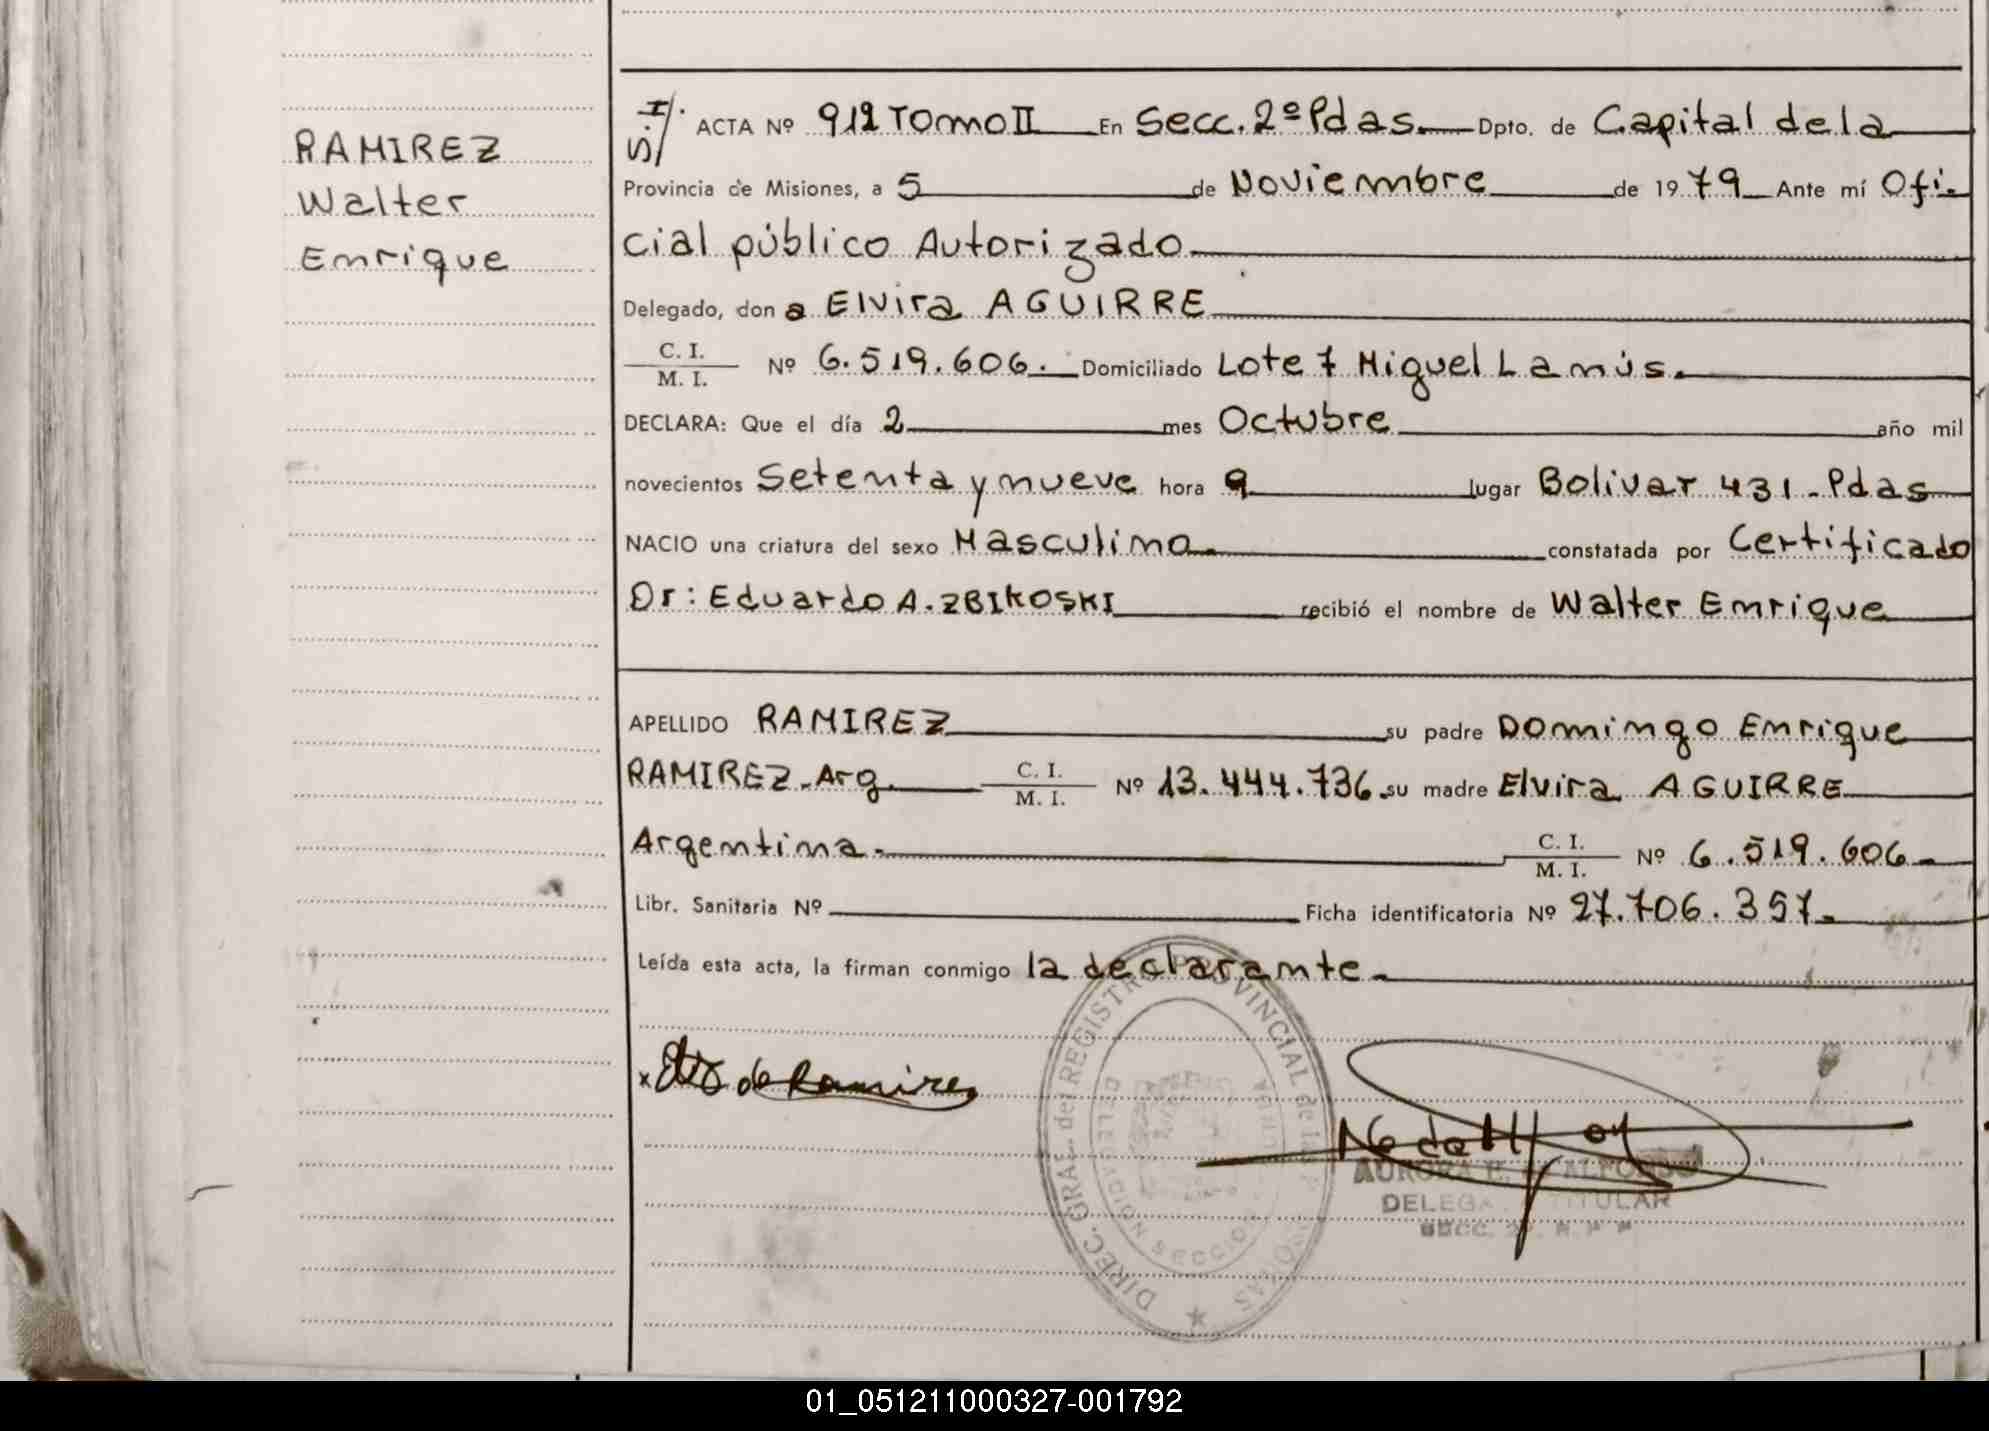 RAMIREZ
Walter
Enrique
S.I/. ACTA Nº 912 Tomo II En Secc. 2º Pdas. Dpto. de Capital de la
Provincia de Misiones, a 5 de Noviembre de 1979 Ante mí Ofi-
cial público Autorizado
Delegado, don a Elvira AGUIRRE
C. I.
M. I. Nº 6.519.606. Domiciliado Lote 7 Miguel Lanús.
DECLARA: Que el día 2 mes Octubre año mil
novecientos Setenta y nueve hora 9 lugar Bolivar 431 - Pdas
NACIO una criatura del sexo Masculino constatada por Certificado
Dr: Eduardo A. ZBIKOSKI recibió el nombre de Walter Enrique
APELLIDO RAMIREZ su padre Domingo Enrique
RAMIREZ - Arg. C. I.
M. I. Nº 13.444.736 su madre Elvira AGUIRRE
Argentina. C. I.
M. I. Nº 6.519.606
Libr. Sanitaria Nº Ficha identificatoria Nº 27.706.357.
Leída esta acta, la firman conmigo la declarante
DIREC. GRAL. del REGISTRO PROVINCIAL de las
SECCION
x de Ramirez
AURORA ALFONSO
DELEGA TITULAR
SECC.
01_051211000327-001792